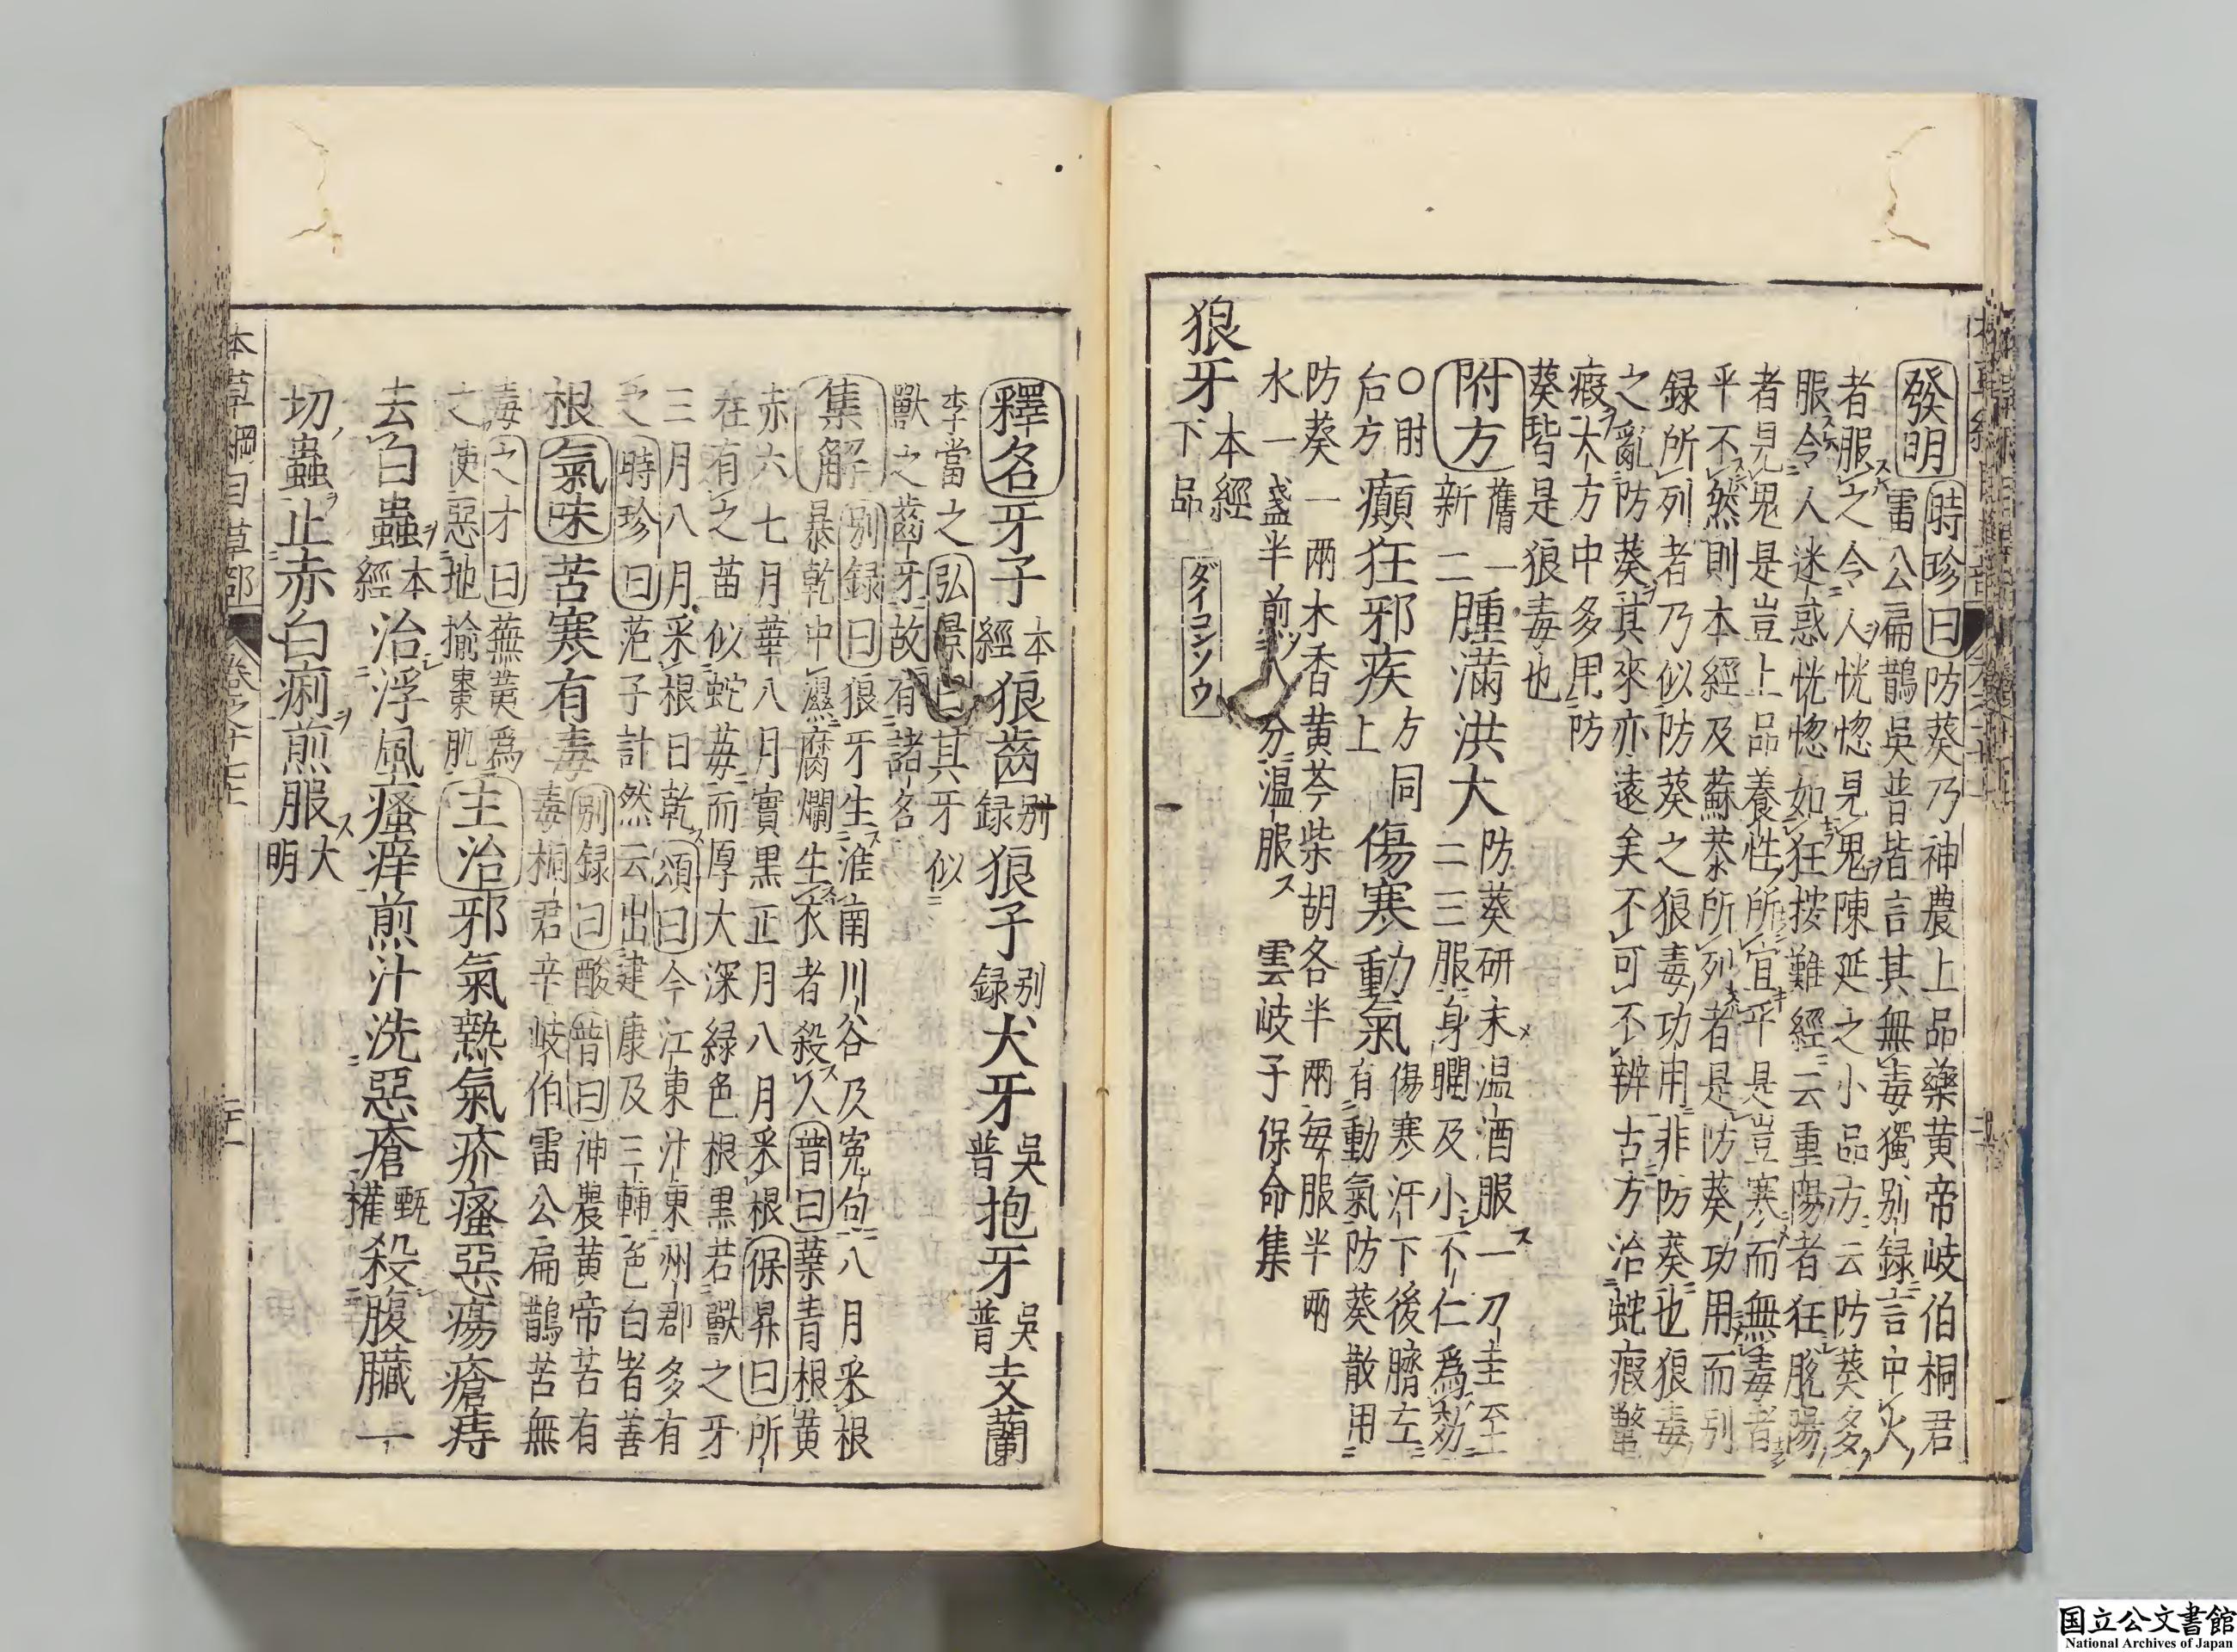 發明 時珍曰防葵乃神農上品藥黃帝岐伯桐君
雷公扁鵲吳普皆言其無毒獨別録言中火
者服之令人恍惚見鬼陳延之小品方云防葵多
服令人迷惑恍惚如狂按難經云重陽者狂脫陽
者見鬼是豈上品養性所宜乎是豈寒而無毒者
乎不然則本經及蘇恭所列者是防葵功用而別
録所列者乃似防葵之狼毒功用非防葵也狼毒
之亂防葵其來亦遠矣不可不辨古方治蛇瘕鱉
瘕大方中多用防
葵皆是狼毒也
附方 舊一新二 腫滿洪大 防葵研末温酒服一刀圭至二三服身瞤及小不仁爲效
○肘后方 癲狂邪疾 方同上 傷寒動氣 傷寒汗下後臍左有動氣防葵散用
防葵一兩木香黃芩柴胡各半兩每服半兩
水一盞半煎八分温服ス 雲岐子保命集
狼牙 本經下品 ダイコンソウ
釋名 牙子 本經 狼齒 別録 狼子 別録 犬牙 吳普 抱牙 吳普 支蘭
李當之 弘景曰其牙似
獸之齒牙故有諸名
集解 別録曰狼牙生淮南川谷及寃句八月采根
暴乾中濕腐爛生衣者殺人普曰葉青根黃
赤六七月華八月實黒正月八月采根保昇曰所
在有之苗似蛇莓而厚大深緑色根黒若獸之牙
三月八月采根日乾頌曰今江東汴東州郡多有
之時珍曰范子計然云出建康及三輔色白者善
根 氣味 苦寒有毒 別録曰酸普曰神農黃帝苦有毒桐君辛岐伯雷公扁鵲苦無
毒之才曰蕪荑爲之使惡地揄棗肌 主治 邪氣熱氣疥瘙惡瘍瘡痔
去白蟲 本經 治浮風瘙痒煎汁洗惡瘡 甄權 殺腹臟一
切蟲止赤白痢煎服 大明
本草綱目草部 卷之十七上
国立公文書館
National Archives of Japan